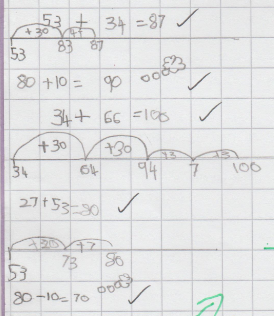 53 + 34 = 87 ✓
+30 +4
53 83 87
80 + 10 = 90 ✓
34 + 66 = 100 ✓
+30 +30 +3 +3
34 64 94 7 100
27 + 53 = 80 ✓
+20 +7
53 73 80
80 - 10 = 70 ✓